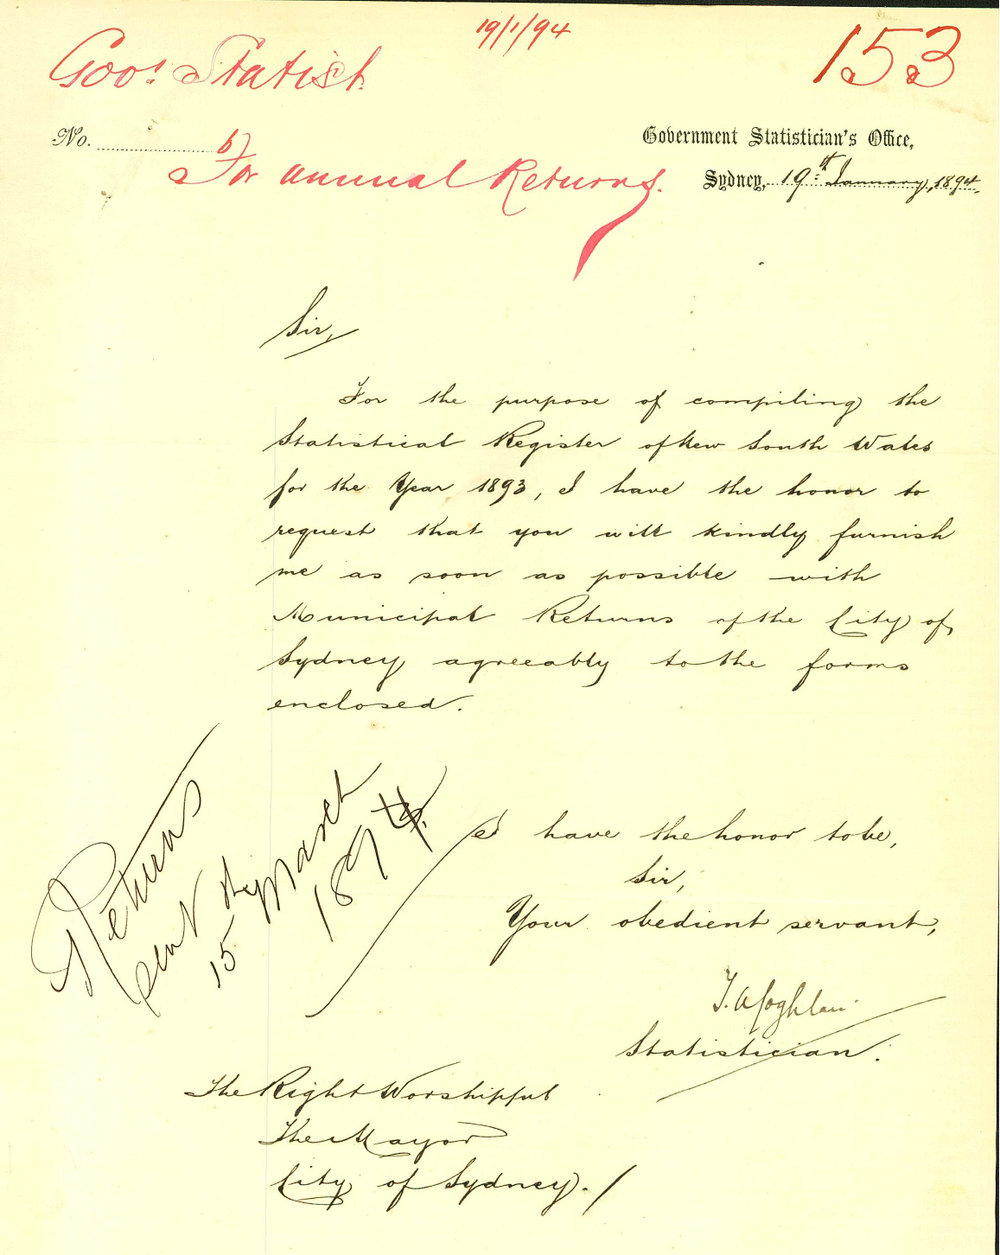 19/1/94
153
Govt. Statist.
No.
Government Statistician's Office,
For annual Returns.
Sydney, 19th January, 1894.
Sir,
For the purpose of compiling the
Statistical Register of New South Wales
for the Year 1893, I have the honor to
request that you will kindly furnish
me as soon as possible with
Municipal Returns of the City of
Sydney agreeably to the forms
enclosed.
I have the honor to be,
Sir,
Your obedient servant,
T. A. Coghlan
Statistician.
Returns
sent the
15 March
1894.
The Right Worshipful
The Mayor
City of Sydney. /